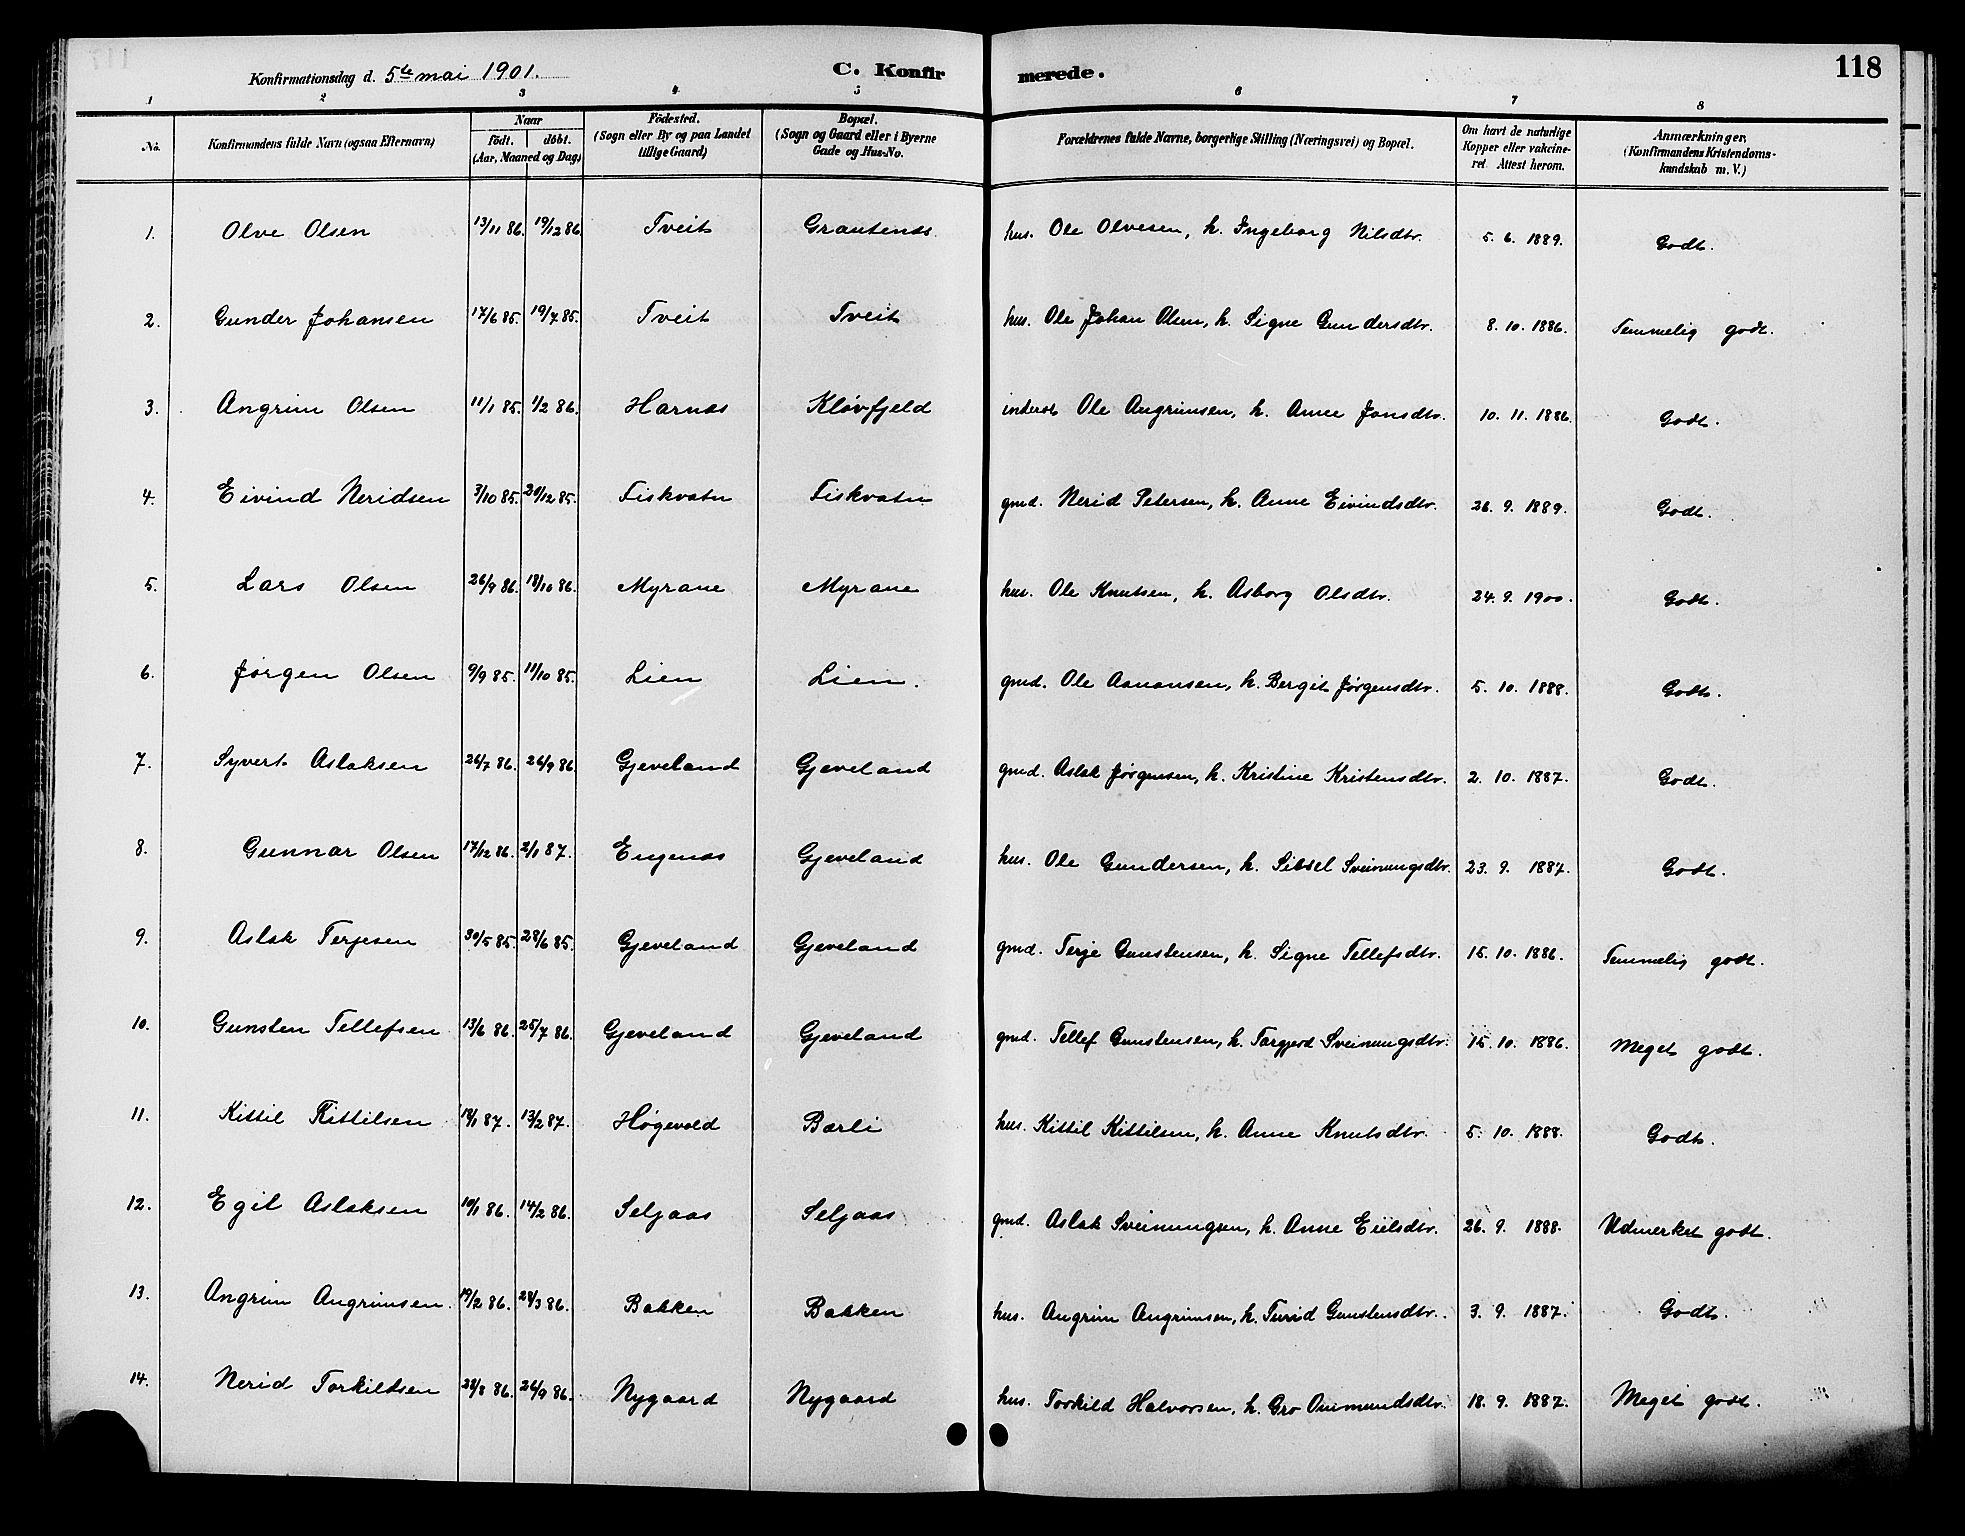 Konfirmationsdag d. 5te mai 1901. C. Konfirmerede. 118
1 2 3 4 5 6 7 8
No. Konfirmandens fulde Navn (ogsaa Efternavn) Naar födt. döbt. (Aar, Maaned og Dag) Födested. (Sogn eller By og paa Landet tillige Gaard) Bopæl. (Sogn og Gaard eller i Byerne Gade og Hus-No. Forældrenes fulde Navne, borgerlige Stilling (Næringsvei) og Bopæl. Om havt de naturlige Kopper eller vakcineret. Attest herom. Anmærkninger, (Konfirmandens Kristendomskundskab m. V.)
1. Olve Olsen 13/11 86. 19/12 86. Tveit Grautenes hus. Ole Olvesen, h. Ingeborg Nilsdtr. 5. 6. 1889. Godt.
2. Gunder Johansen 17/6 85. 19/7 85. Tveit Tveit hus. Ole Johan Olsen, h. Signe Gundersdtr. 8. 10. 1886. Temmelig godt.
3. Angrim Olsen 11/1 85. 1/2 86. Harnes Kløvfjeld inderst Ole Angrimsen, h. Anne Jonsdtr. 10. 11. 1886. Godt.
4. Eivind Neridsen 3/10 85. /12 85. Fiskvatn Fiskvatn gmd. Nerid Petersen, h. Anne Eivindsdtr. 26. 9. 1889. Godt.
5. Lars Olsen 26/9 86. 18/10 86. Myrane Myrane hus. Ole Knutsen, h. Asborg Olsdtr. 24. 9. 1900. Godt.
6. Jørgen Olsen 9/9 85. 11/10 85. Lien Lien. gmd. Ole Aanonsen, h. Bergit Jørgensdtr. 5. 10. 1888. Godt.
7. Syvert Aslaksen 26/7 86. 26/9 86. Gjeveland Gjeveland gmd. Aslak Jørgensen, h. Kristine Kristensdtr. 2. 10. 1887. Godt.
8. Gunnar Olsen 17/12 86. 2/1 87. Engenes Gjeveland hus. Ole Gundersen, h. Sibsel Sveinungsdtr. 23. 9. 1887. Godt.
9. Aslak Terjesen 30/5 85. 28/6 85. Gjeveland Gjeveland gmd. Terje Gunstensen, h. Signe Tellefsdtr. 15. 10. 1886. Temmelig godt.
10. Gunsten Tellefsen 13/6 86. 25/7 86. Gjeveland Gjeveland gmd. Tellef Gunstensen, h. Targjerd Sveinungsdtr. 15. 10. 1886. Meget godt.
11. Kittil Kittilsen 18/1 87. 13/2 87. Høgevold Bærli hus. Kittil Kittilsen, h. Anne Knutsdtr. 5. 10. 1888. Godt.
12. Egil Aslaksen 10/1 86. 14/2 86. Seljaas Seljaas gmd. Aslak Sveinungsen, h. Anne Eielsdtr. 26. 9. 1888. Udmerket godt.
13. Angrim Angrimsen. 19/2 86. 28/3 86. Bakken Bakken hus. Angrim Angrimsen, h. Turid Gunstensdtr. 3. 9. 1887. Godt.
14. Nerid Torkildsen 28/8 86. 26/9 86. Nygaard Nygaard hus. Torkild Halvorsen, h. Gro Ommundsdtr. 18. 9. 1887. Meget godt.